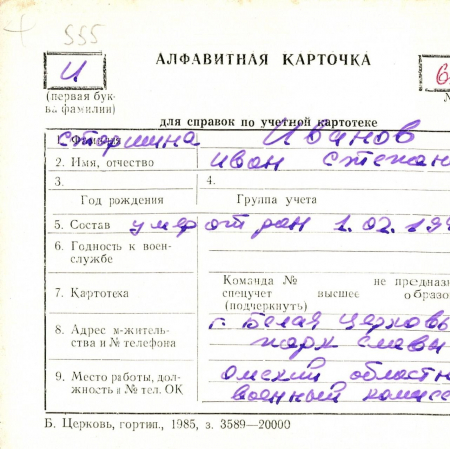 555
АЛФАВИТНАЯ КАРТОЧКА
И
6
(первая бук-
ва фамилии)
для справок по учетной картотеке
1. Фамилия старшина Иванов
2. Имя, отчество Иван Степан
3. 4.
Год рождения Группа учета
5. Состав умер от ран 1.02.194
6. Годность к воен-
службе
Команда № не предназ
7. Картотека спецучет высшее образо
(подчеркнуть)
8. Адрес м-жительс-
тва и № телефона
г. Белая Церковь
парк славы
9. Место работы, дол-
жность и № тел. ОК
Омский областн
военный комисс
Б. Церковь, гортип., 1985, з. 3589—20000